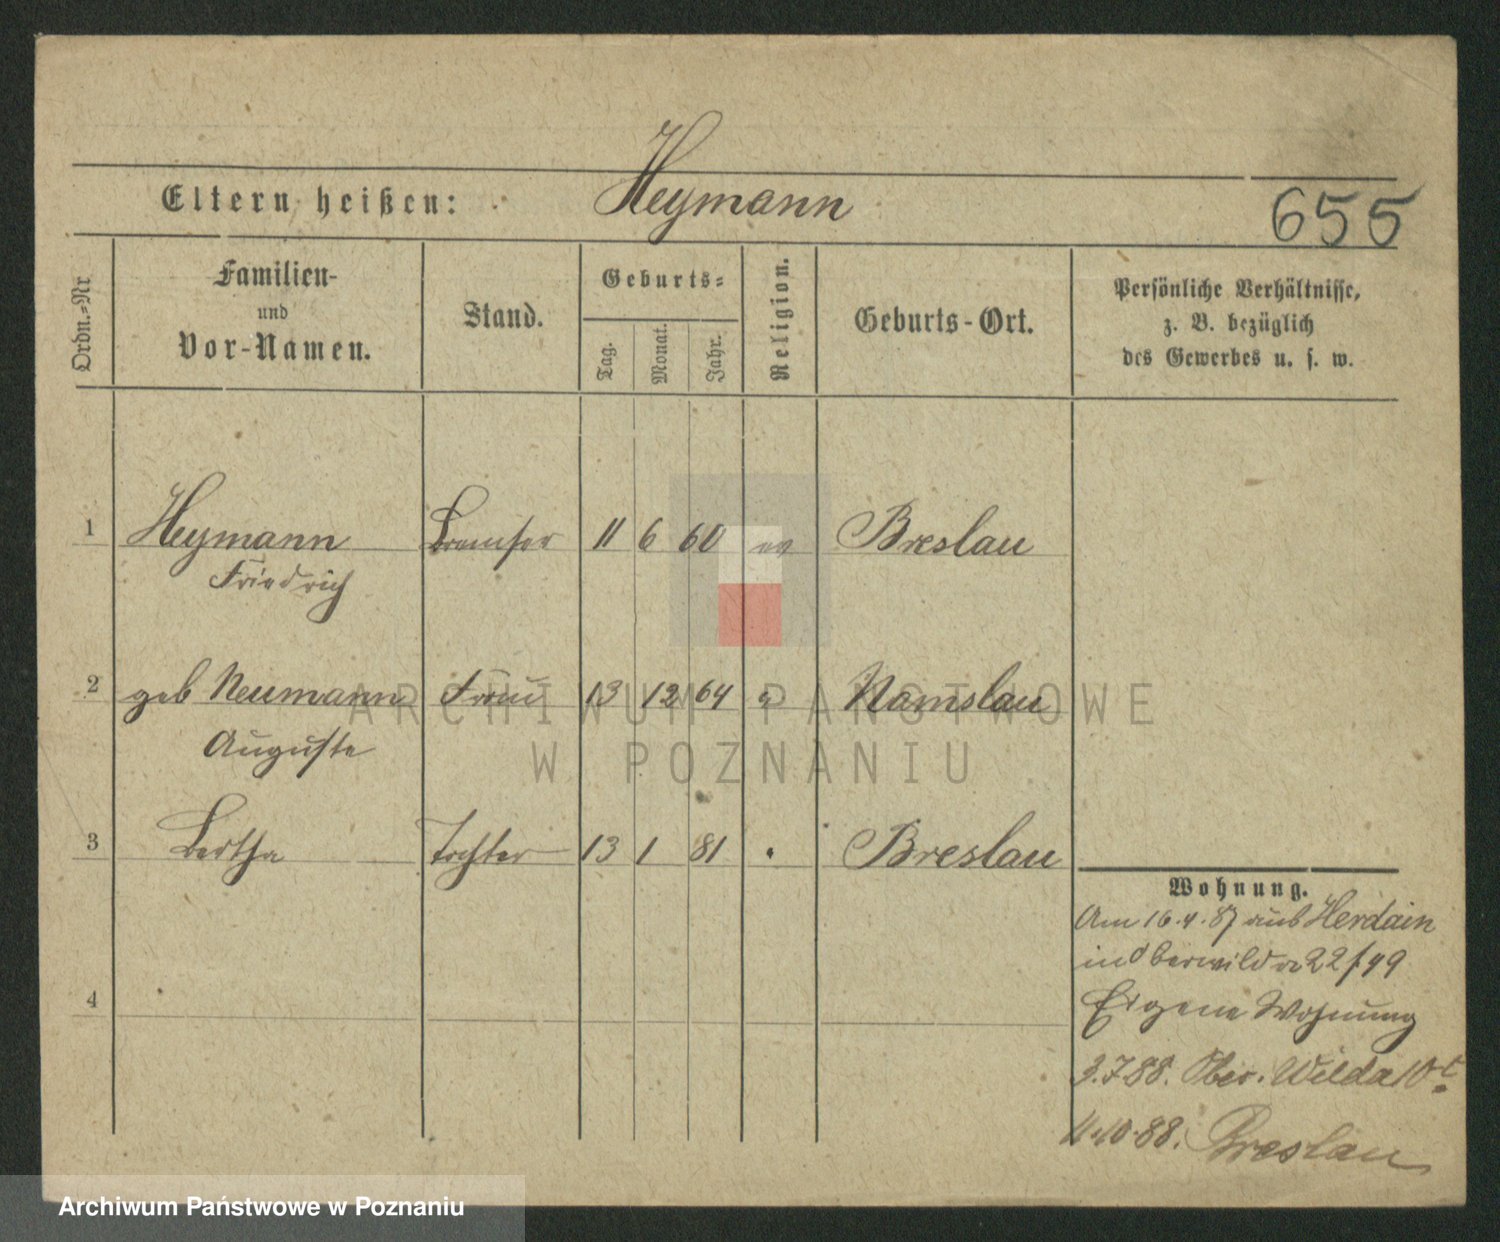 Eltern heißen: Heymann
655
Ordn.=Nr
Familien-
und
Vor-Namen.
Stand.
Geburts=
Tag.
Monat.
Jahr.
Religion.
Geburts-Ort.
Persönliche Verhältnisse,
z. B. bezüglich
des Gewerbes u. s. w.
1 Heymann Bremser 11 6 60 ev Breslau
Friedrich
2 geb Neumann Frau 13 12 64 Namslau
Auguste
3 Bertha Tochter 13 1 81 Breslau
4
Wohnung.
Am 16.4.87 aus Herdain
in Oberwilda 22/49
Eigene Wohnung
3.7.88. Ober. Wilda 10
11.10.88. Breslau
ARCHIWUM PAŃSTWOWE
W POZNANIU
Archiwum Państwowe w Poznaniu